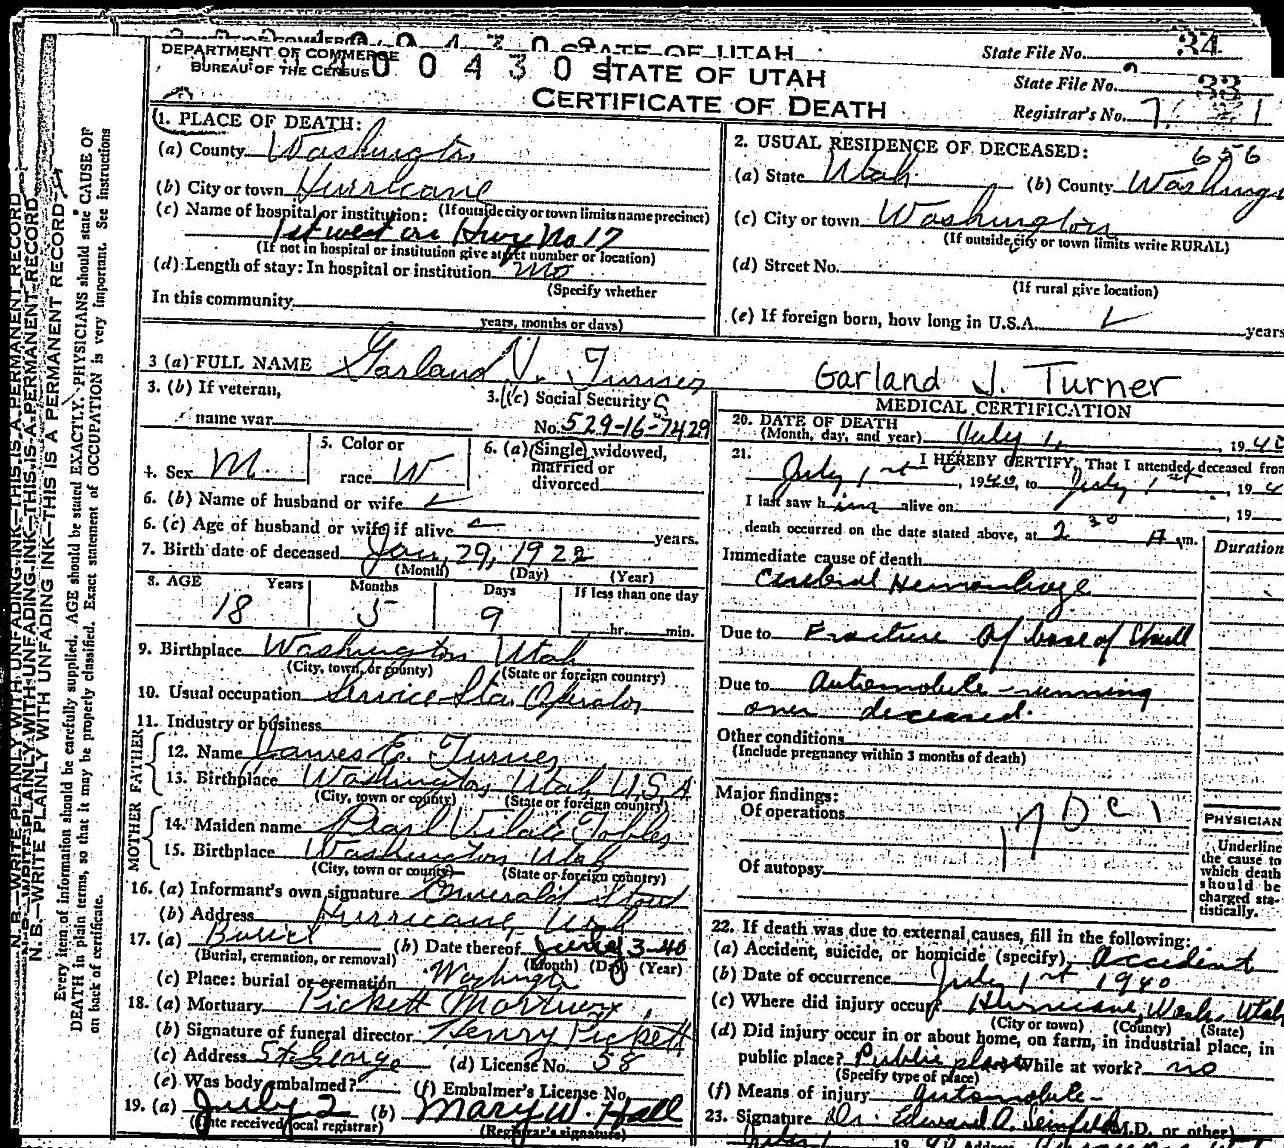 STATE OF UTAH
State File No. 34
DEPARTMENT OF COMMERCE
BUREAU OF THE CENSUS
400430
STATE OF UTAH
State File No. 33
CERTIFICATE OF DEATH
Registrar's No. 7
1. PLACE OF DEATH:
(a) County Washington
(b) City or town Hurricane
(If outside city or town limits name precinct)
(c) Name of hospital or institution:
1st west on Hwy No 17
(If not in hospital or institution give street number or location)
(d) Length of stay: In hospital or institution no
(Specify whether
In this community
years, months or days)
2. USUAL RESIDENCE OF DECEASED:
656
(a) State Utah (b) County Washing
(c) City or town Washington
(If outside city or town limits write RURAL)
(d) Street No.
(If rural give location)
(e) If foreign born, how long in U.S.A. years
3 (a) FULL NAME Garland J. Turner
Garland J. Turner
3. (b) If veteran,
name war
3. (c) Social Security
No. 529-16-7429
4. Sex M
5. Color or
race W
6. (a) Single, widowed,
married or
divorced
6. (b) Name of husband or wife
6. (c) Age of husband or wife if alive years.
7. Birth date of deceased Jan. 29, 1922
(Month) (Day) (Year)
8. AGE Years Months Days If less than one day
18 5 9 hr. min.
9. Birthplace Washington Utah
(City, town, or county) (State or foreign country)
10. Usual occupation Service Sta. Operator
11. Industry or business
FATHER
12. Name James E. Turner
13. Birthplace Washington Utah U.S.A
(City, town or county) (State or foreign country)
MOTHER
14. Maiden name Pearl Tobler
15. Birthplace Washington Utah
(City, town or county) (State or foreign country)
16. (a) Informant's own signature Stout
(b) Address Hurricane, Utah
17. (a) Burial (b) Date thereof 3-40
(Burial, cremation, or removal) (Month) (Day) (Year)
(c) Place: burial or cremation Washington
18. (a) Mortuary Pickett Mortuary
(b) Signature of funeral director Henry Pickett
(c) Address St George (d) License No. 58
(e) Was body embalmed? (f) Embalmer's License No.
19. (a) July 2 (b) Mary W. Hall
(Date received local registrar) (Registrar's signature)
MEDICAL CERTIFICATION
20. DATE OF DEATH
(Month, day, and year) July 1, 1940
21. I HEREBY CERTIFY, That I attended deceased from
July 1st, 1940, to July 1st, 194
I last saw him alive on , 19
death occurred on the date stated above, at 2 30 A m.
Duration
Immediate cause of death
Cerebral Hemorrhage
Due to Fracture of base of Skull
Due to Automobile running
over deceased.
Other conditions
(Include pregnancy within 3 months of death)
Major findings:
Of operations
Of autopsy
PHYSICIAN
Underline
the cause to
which death
should be
charged sta-
tistically.
22. If death was due to external causes, fill in the following:
(a) Accident, suicide, or homicide (specify) Accident
(b) Date of occurrence July 1st 1940
(c) Where did injury occur? Hurricane, Wash. Utah
(City or town) (County) (State)
(d) Did injury occur in or about home, on farm, in industrial place, in
public place? Public place While at work? no
(Specify type of place)
(f) Means of injury Automobile
23. Signature Dr. Edward A. M.D. or other)
N.B.—WRITE PLAINLY WITH UNFADING INK—THIS IS A PERMANENT RECORD
Every item of information should be carefully supplied. AGE should be stated EXACTLY. PHYSICIANS should state CAUSE OF
DEATH in plain terms, so that it may be properly classified. Exact statement of OCCUPATION is very important. See instructions
on back of certificate.